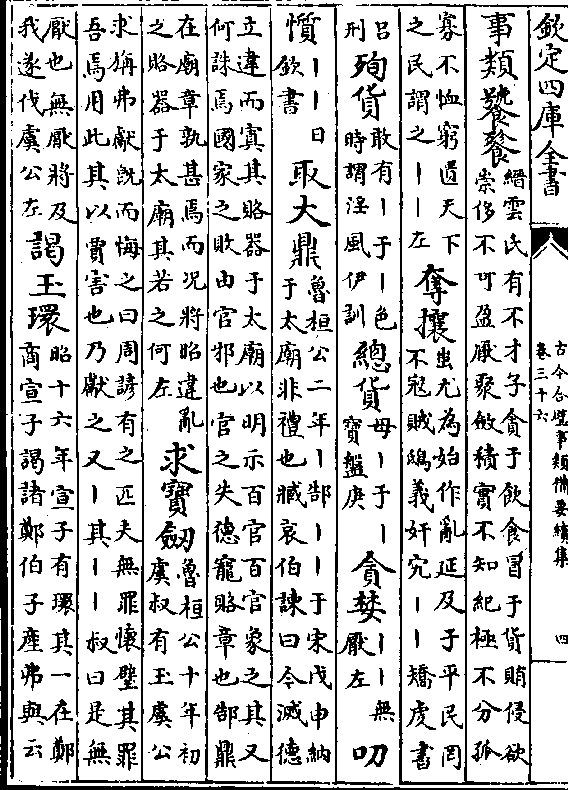 欽定四庫全書
古今合璧事類備要續集
卷三十六
四
事類饕餮縉雲氏有不才子貪于飲食冒于貨賄侵欲
崇侈不可盈厭聚斂積實不知紀極不分孤
寡不恤窮匱天下
之民謂之丨丨左奪攘蚩尤為始作亂延及于平民罔
不冦賊鴟義奸宄丨丨矯虔書
吕
刑殉貨敢有丨于丨色
時謂淫風伊訓總貨毋丨于丨
寳盤庚貪婪丨丨無
厭左叨
懫丨丨日
欽書取大鼎魯桓公二年丨郜丨丨于宋戊申納
于太廟非禮也臧哀伯諫曰今滅德
立違而寘其賂器于太廟以明示百官百官象之其又
何誅焉國家之敗由官邪也官之失德寵賂章也郜鼎
在廟章孰甚焉而况將昭違亂
之賂器于太廟其若之何左求寳劒魯桓公十年初
虞叔有玉虞公
求旃弗獻既而悔之曰周諺有之匹夫無罪懷璧其罪
吾焉用此其以賈害也乃獻之又丨其丨丨叔曰是無
厭也無厭將及
我遂伐虞公左謁玉環昭十六年宣子有環其一在鄭
商宣子謁諸鄭伯子産弗與云